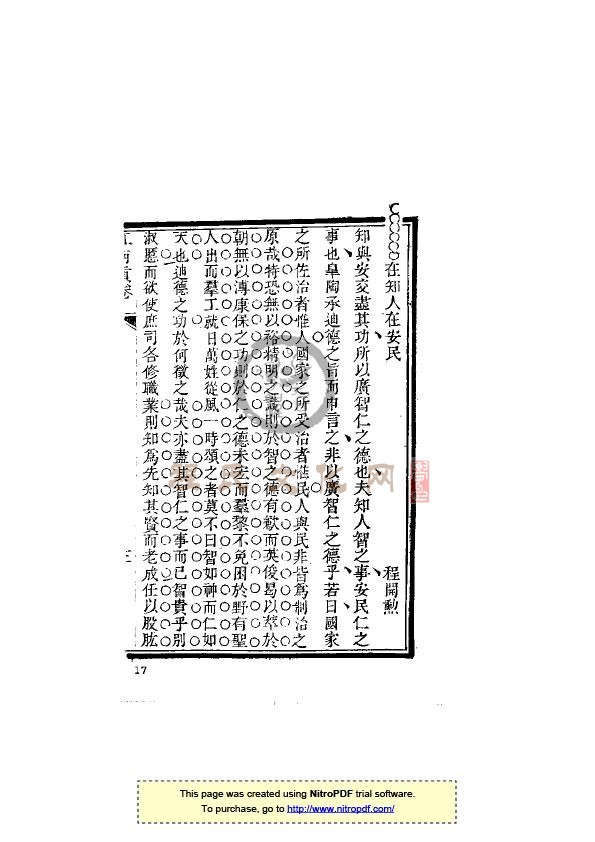 在知人在安民 程開勲
知與安交盡其功所以廣智仁之德也夫知人智之事安民仁之
事也臯陶承迪德之旨而申言之非以廣智仁之德乎若曰國家
之所佐治者惟人國家之所受治者惟民人與民非皆爲制治之
原哉特恐無以裕精明之識則於智之德有歉而英俊曷以萃於
朝無以溥康保之功則於仁之德未宏而羣黎不免困於野有聖
人出而羣工就日萬姓從風一時頌之者莫不曰智如神而仁如
天也迪德之功於何徵之哉夫亦盡其智仁之事而已智貴乎別
淑慝而欲使庶司各修職業則知爲先知其賢而老成任以股肱
三
17
This page was created using NitroPDF trial software.
To purchase, go to http://www.nitropdf.com/